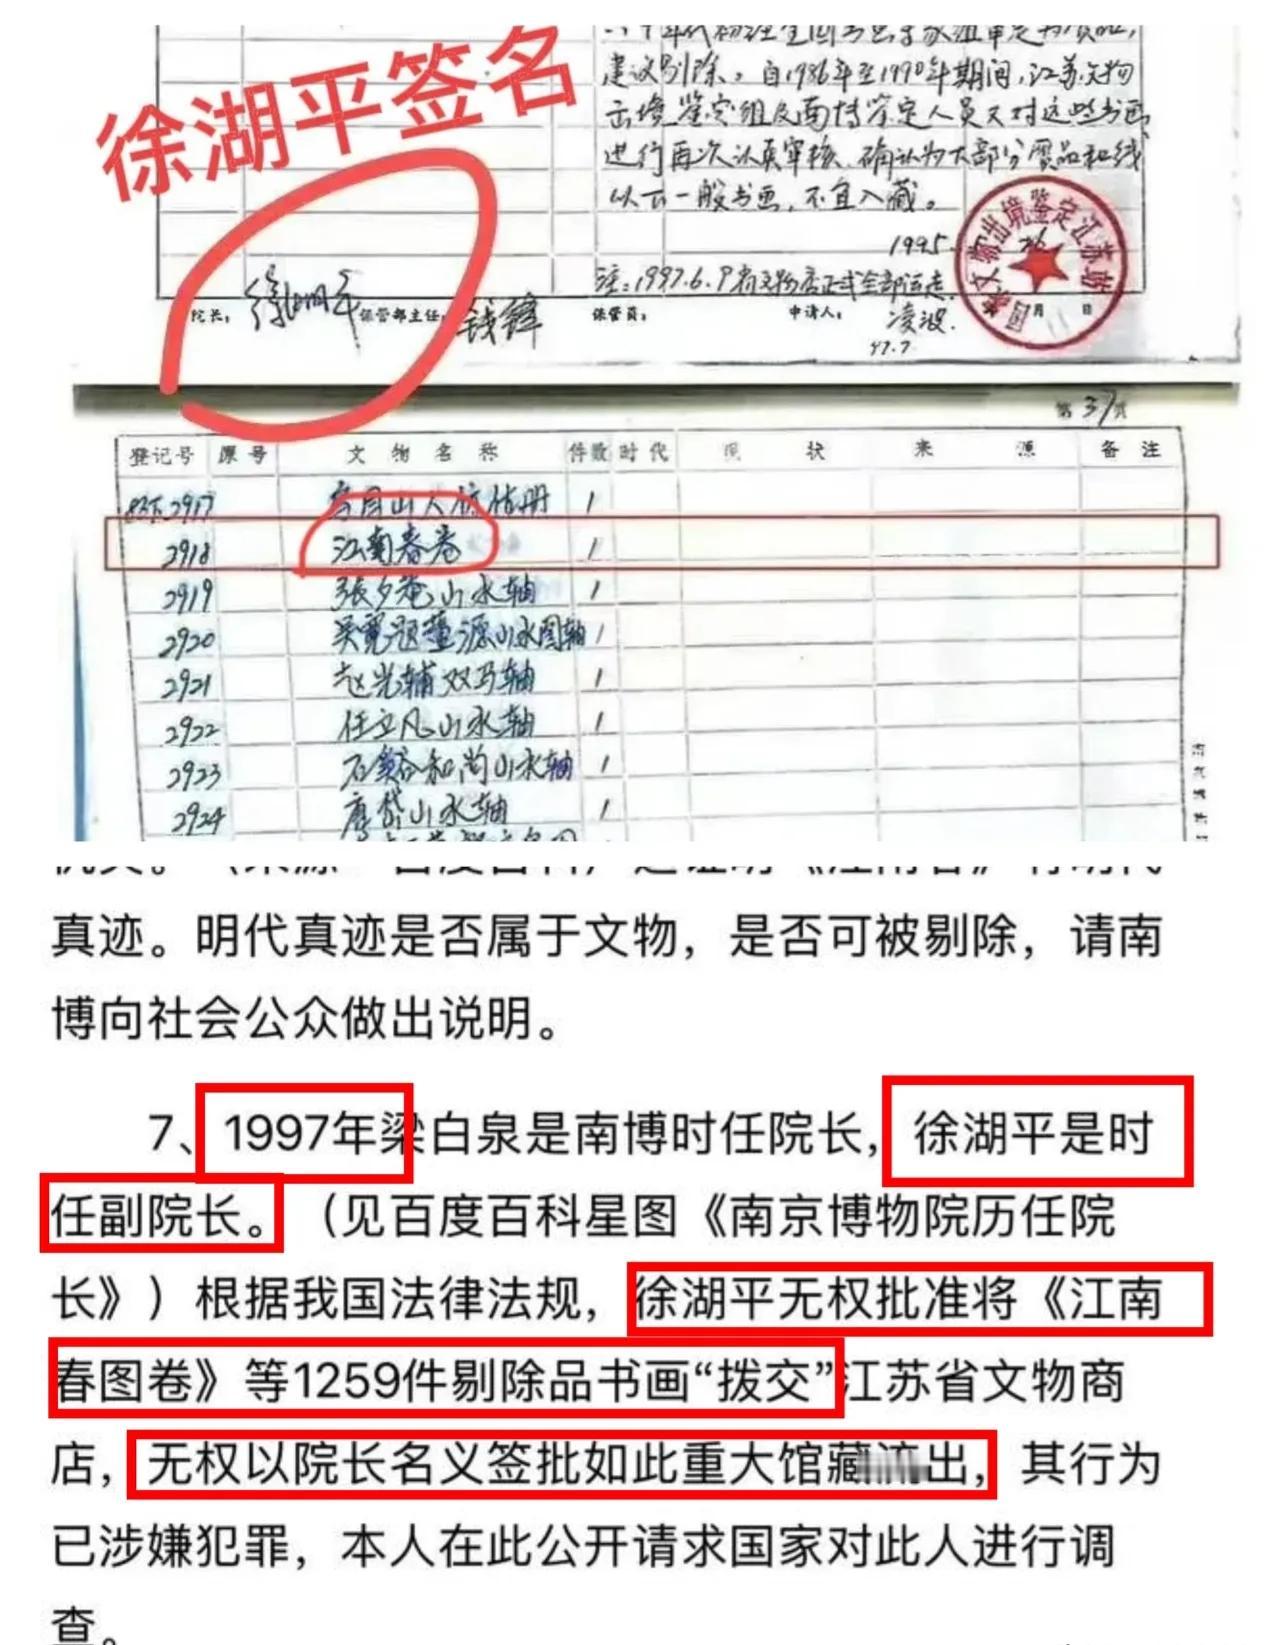 徐湖平签名
建议剔除。自1986年至1990年期间,江苏文物
出境鉴定组及南博鉴定人员又对这些书画
进行再次认真审核,确认为大部分赝品和线
以下一般书画,不宜入藏。
1995.
国家文物出境鉴定江苏站
月 日
注:1997.6.9 全部运走.
院长: 徐湖平 保管部主任: 钱锋 保管员: 申请人: 凌波.
97.7
第 37 页
登记号 原号 文物名称 件数 时代 现状 来源 备注
2917 册 1
2918 江南春卷 1
2919 張夕庵山水轴 1
2920 吴寬题董源山水图轴 1
2921 赵光辅双马轴 1
2922 任立凡山水轴 1
2923 石溪和尚山水轴 1
2924 唐岱山水轴 1
真迹。明代真迹是否属于文物，是否可被剔除，请南
博向社会公众做出说明。
7、1997年梁白泉是南博时任院长，徐湖平是时
任副院长。（见百度百科星图《南京博物院历任院
长》）根据我国法律法规，徐湖平无权批准将《江南
春图卷》等1259件剔除品书画“拨交”江苏省文物商
店，无权以院长名义签批如此重大馆藏流出，其行为
已涉嫌犯罪，本人在此公开请求国家对此人进行调
查。